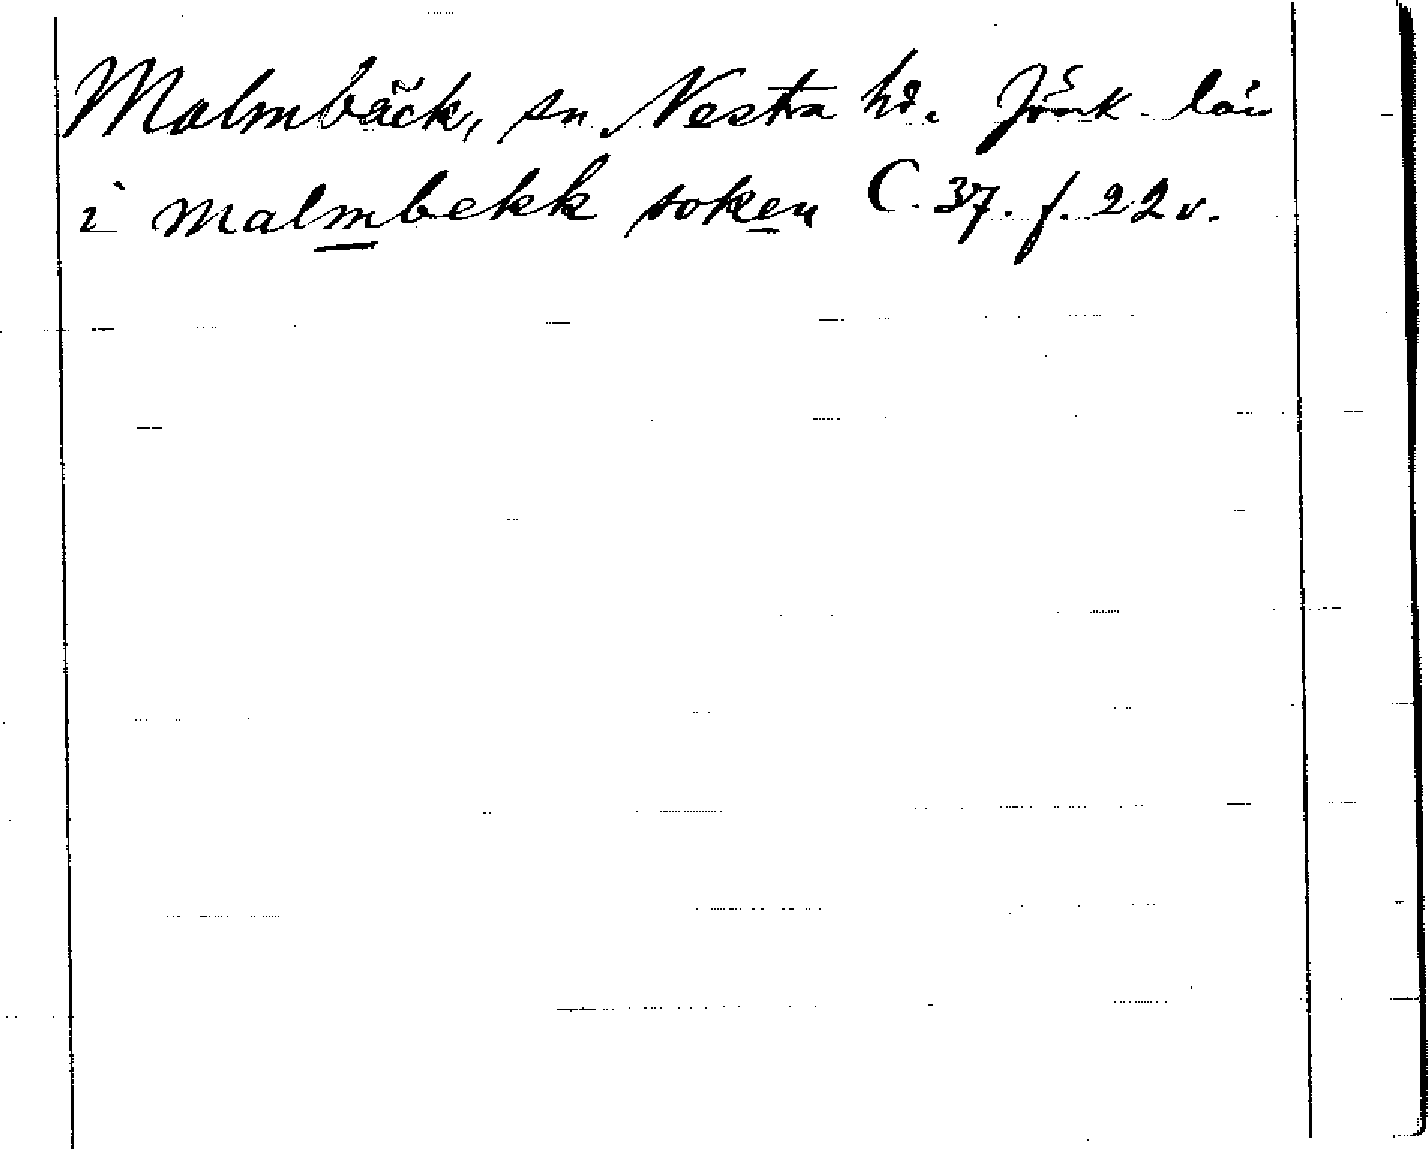 Malmbäck, sn. Vestra hd. Jönk. län
i malmbekk soken C. 37. f. 22 v.